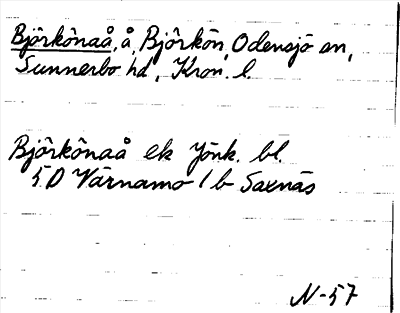 Björkönaå, å, Björkön, Odensjö sn,
Sunnerbo hd, Kron. l.
Björkönaå ek Jönk. bl.
5D Värnamo 1b Saxnäs
N-57